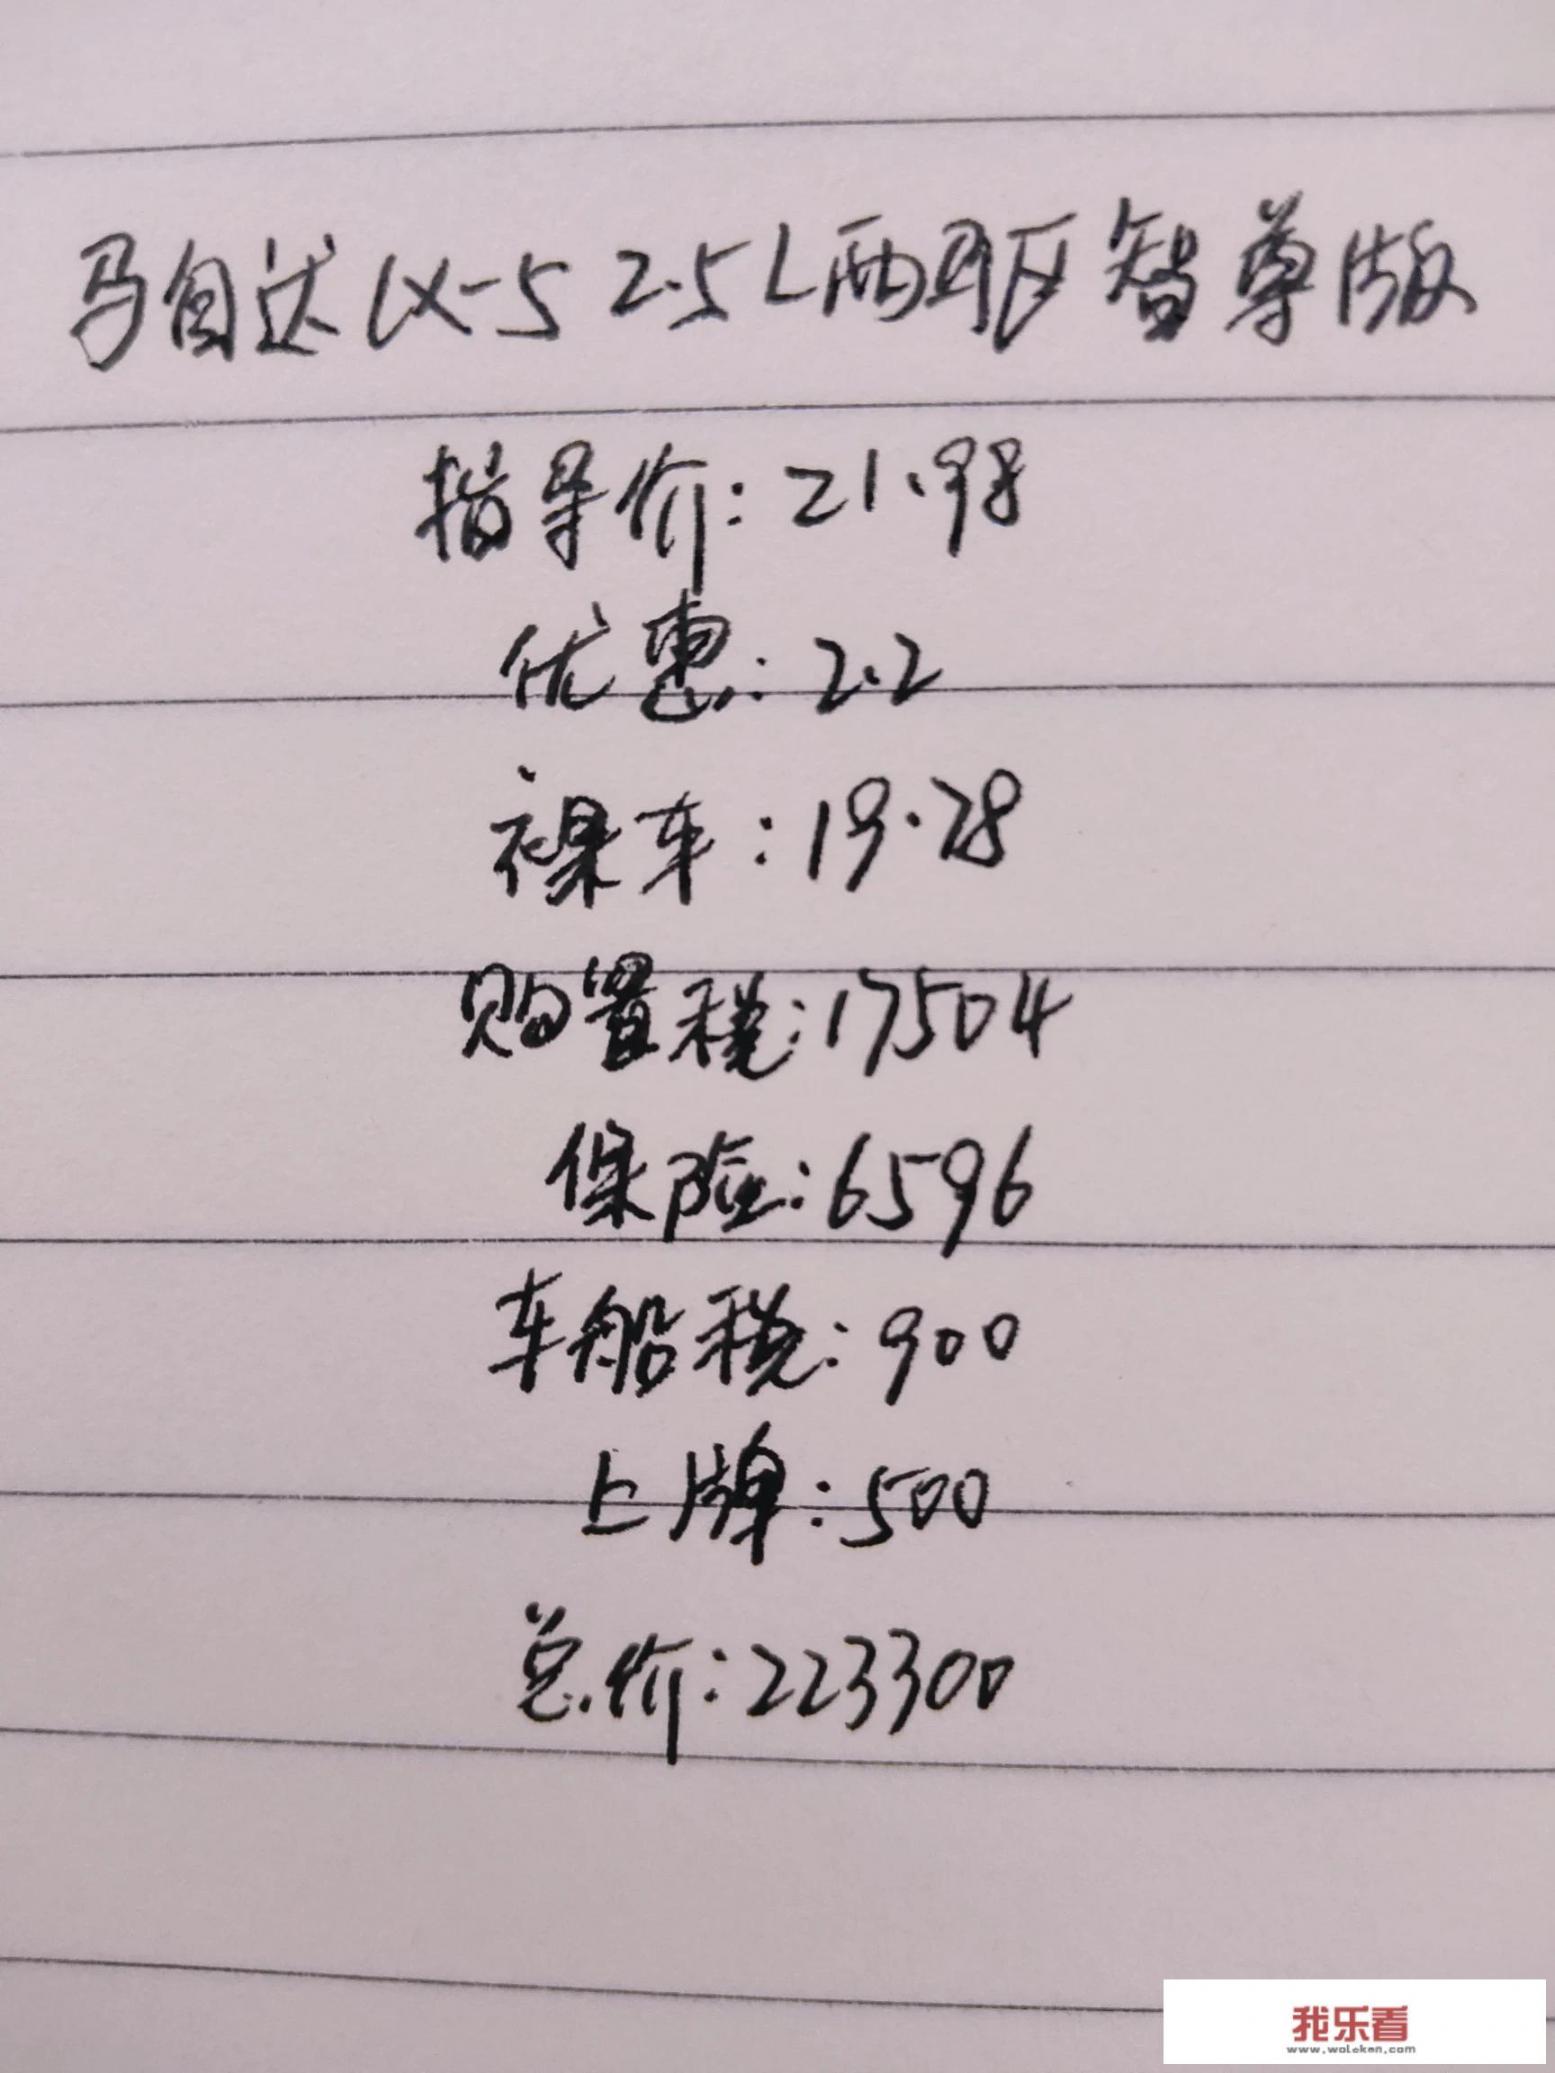 马自达CX-5 2.5L两驱智尊版
指导价:21.98
优惠:2.2
裸车:19.78
购置税:17504
保险:6596
车船税:900
上牌:500
总价:223300
我乐看
www.woleken.com